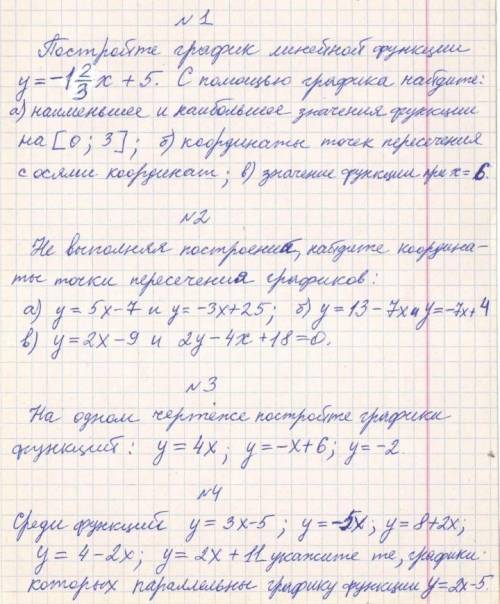 №1
Постройте график линейной функции
y = -1 2/3 x + 5. С помощью графика найдите:
а) наименьшее и наибольшее значения функции
на [0; 3]; б) координаты точек пересечения
с осями координат; в) значение функции при x = 6.
№2
Не выполняя построений, найдите координа-
ты точки пересечения графиков:
а) y = 5x - 7 и y = -3x + 25; б) y = 13 - 7x и y = -7x + 4
в) y = 2x - 9 и 2y - 4x + 18 = 0.
№3
На одном чертеже постройте графики
функций: y = 4x; y = -x + 6; y = -2.
№4
Среди функций y = 3x - 5; y = -5x; y = 8 + 2x;
y = 4 - 2x; y = 2x + 11 укажите те, графики
которых параллельны графику функции y = 2x - 5.